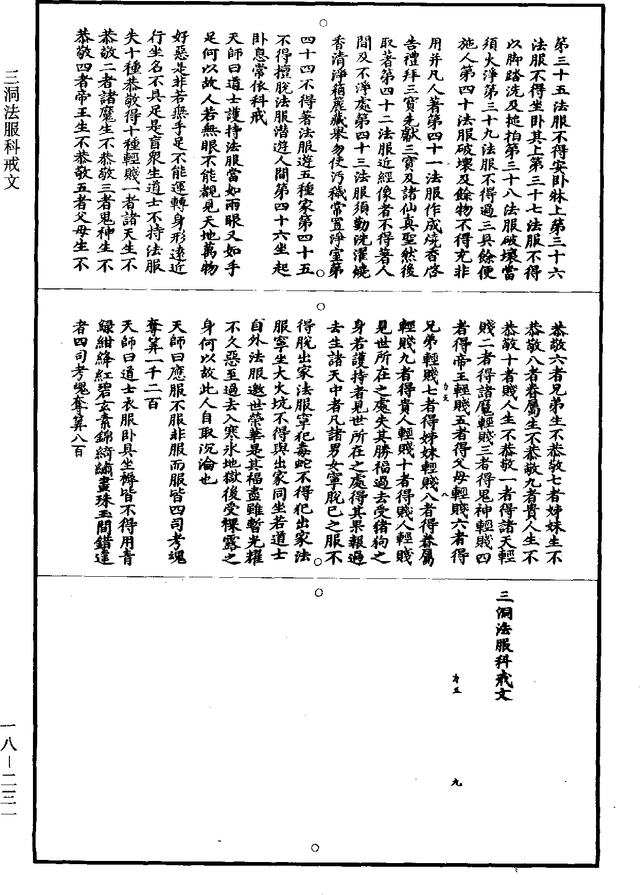 三洞法服科戒文
一八—二三一
第三十五法服不得安卧牀上第三十六
法服不得坐卧其上第三十七法服不得
以脚踏洗及搥拍第三十八法服破壞當
須火淨第三十九法服不得過三具餘便
施人第四十法服破壞及餘物不得充非
用并凡人著第四十一法服作成燒香啓
告禮拜三寶先獻三寶及諸仙真聖然後
取著第四十二法服近經像者不得著人
間及不淨處第四十三法服須勤洗濯燒
香清淨箱簏藏舉勿使汚穢常置淨室第
四十四不得著法服遊五種家第四十五
不得擅脫法服潜遊人間第四十六坐起
卧息常依科戒
天師曰道士護持法服當如兩眼又如手
足何以故人若無眼不能覩見天地萬物
好惡是非若無手足不能運轉身形遠近
行坐名不具足是盲衆生道士不持法服
失十種恭敬得十種輕賤一者諸天生不
恭敬二者諸魔生不恭敬三者鬼神生不
恭敬四者帝王生不恭敬五者父母生不
恭敬六者兄弟生不恭敬七者姊妹生不
恭敬八者眷屬生不恭敬九者貴人生不
恭敬十者賤人生不恭敬一者得諸天輕
賤二者得諸魔輕賤三者得鬼神輕賤四
者得帝王輕賤五者得父母輕賤六者得
兄弟輕賤七者得姊妹輕賤八者得眷屬
輕賤九者得貴人輕賤十者得賤人輕賤
見世所在之處失其勝福過去受猪狗之
身若護持者見世所在之處得其果報過
去生諸天中者凡諸男女寧脫已之服不
得脫出家法服寧犯毒蛇不得犯出家法
服寧坐大火坑不得與出家同坐若道士
自外法服邀世榮華是其福盡雖暫光耀
不久惡至過去入寒氷地獄後受裸露之
身何以故此人自取沉淪也
天師曰應服不服非服而服皆四司考魂
奪筭一千二百
天師曰道士衣服卧具坐褥皆不得用青
緑紺絳紅碧玄素錦綺繡畫珠玉間錯違
者四司考魂奪筭八百
三洞法服科戒文